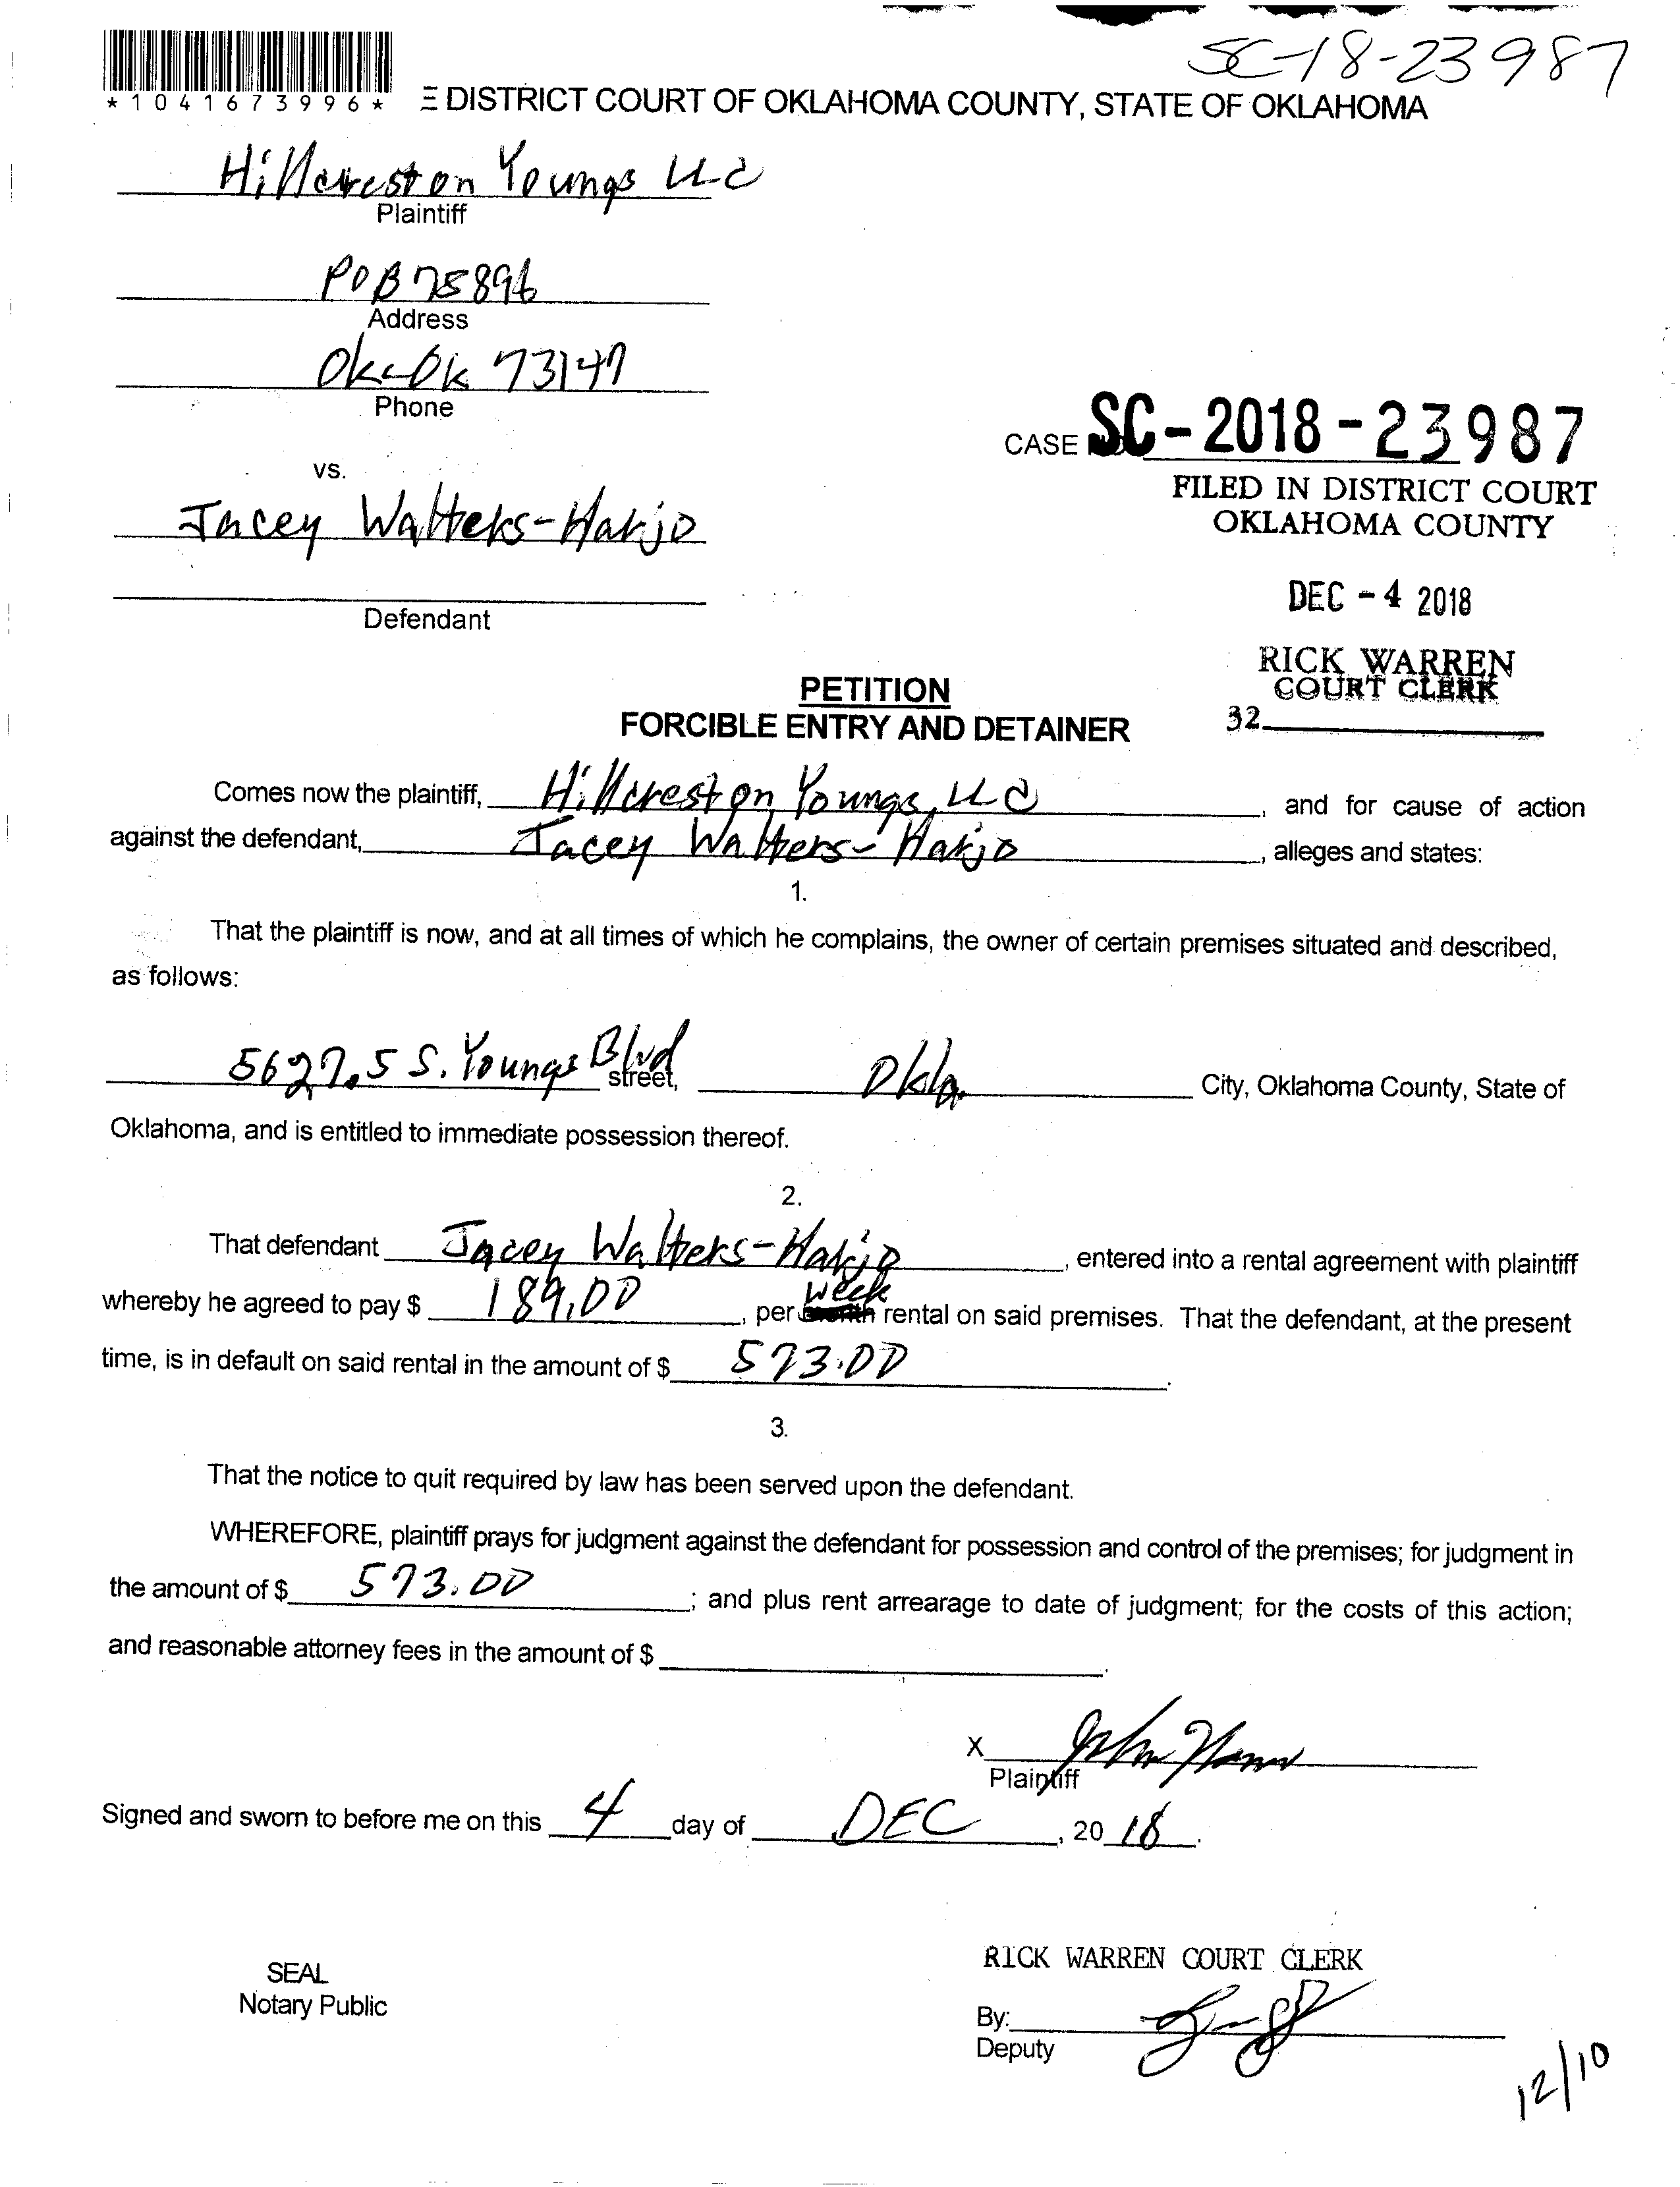 SC-18-23987
*1041673996*
E DISTRICT COURT OF OKLAHOMA COUNTY, STATE OF OKLAHOMA
Hillcrest on Youngs LLC
Plaintiff
POB 75896
Address
Okc Ok 73147
Phone
CASE NO. SC-2018-23987
vs.
FILED IN DISTRICT COURT
OKLAHOMA COUNTY
Jacey Walters-Harjo
DEC - 4 2018
Defendant
RICK WARREN
COURT CLERK
32
PETITION
FORCIBLE ENTRY AND DETAINER
Comes now the plaintiff, Hillcrest on Youngs, LLC, and for cause of action
against the defendant, Jacey Walters-Harjo, alleges and states:
1.
That the plaintiff is now, and at all times of which he complains, the owner of certain premises situated and described,
as follows:
5627.5 S. Youngs Blvd street, Okla. City, Oklahoma County, State of
Oklahoma, and is entitled to immediate possession thereof.
2.
That defendant Jacey Walters-Harjo, entered into a rental agreement with plaintiff
whereby he agreed to pay $ 189.00, per month week rental on said premises. That the defendant, at the present
time, is in default on said rental in the amount of $ 573.00.
3.
That the notice to quit required by law has been served upon the defendant.
WHEREFORE, plaintiff prays for judgment against the defendant for possession and control of the premises; for judgment in
the amount of $ 573.00; and plus rent arrearage to date of judgment; for the costs of this action;
and reasonable attorney fees in the amount of $ .
X
Plaintiff
Signed and sworn to before me on this 4 day of DEC, 20 18.
RICK WARREN COURT CLERK
SEAL
Notary Public
By:
Deputy
12/10